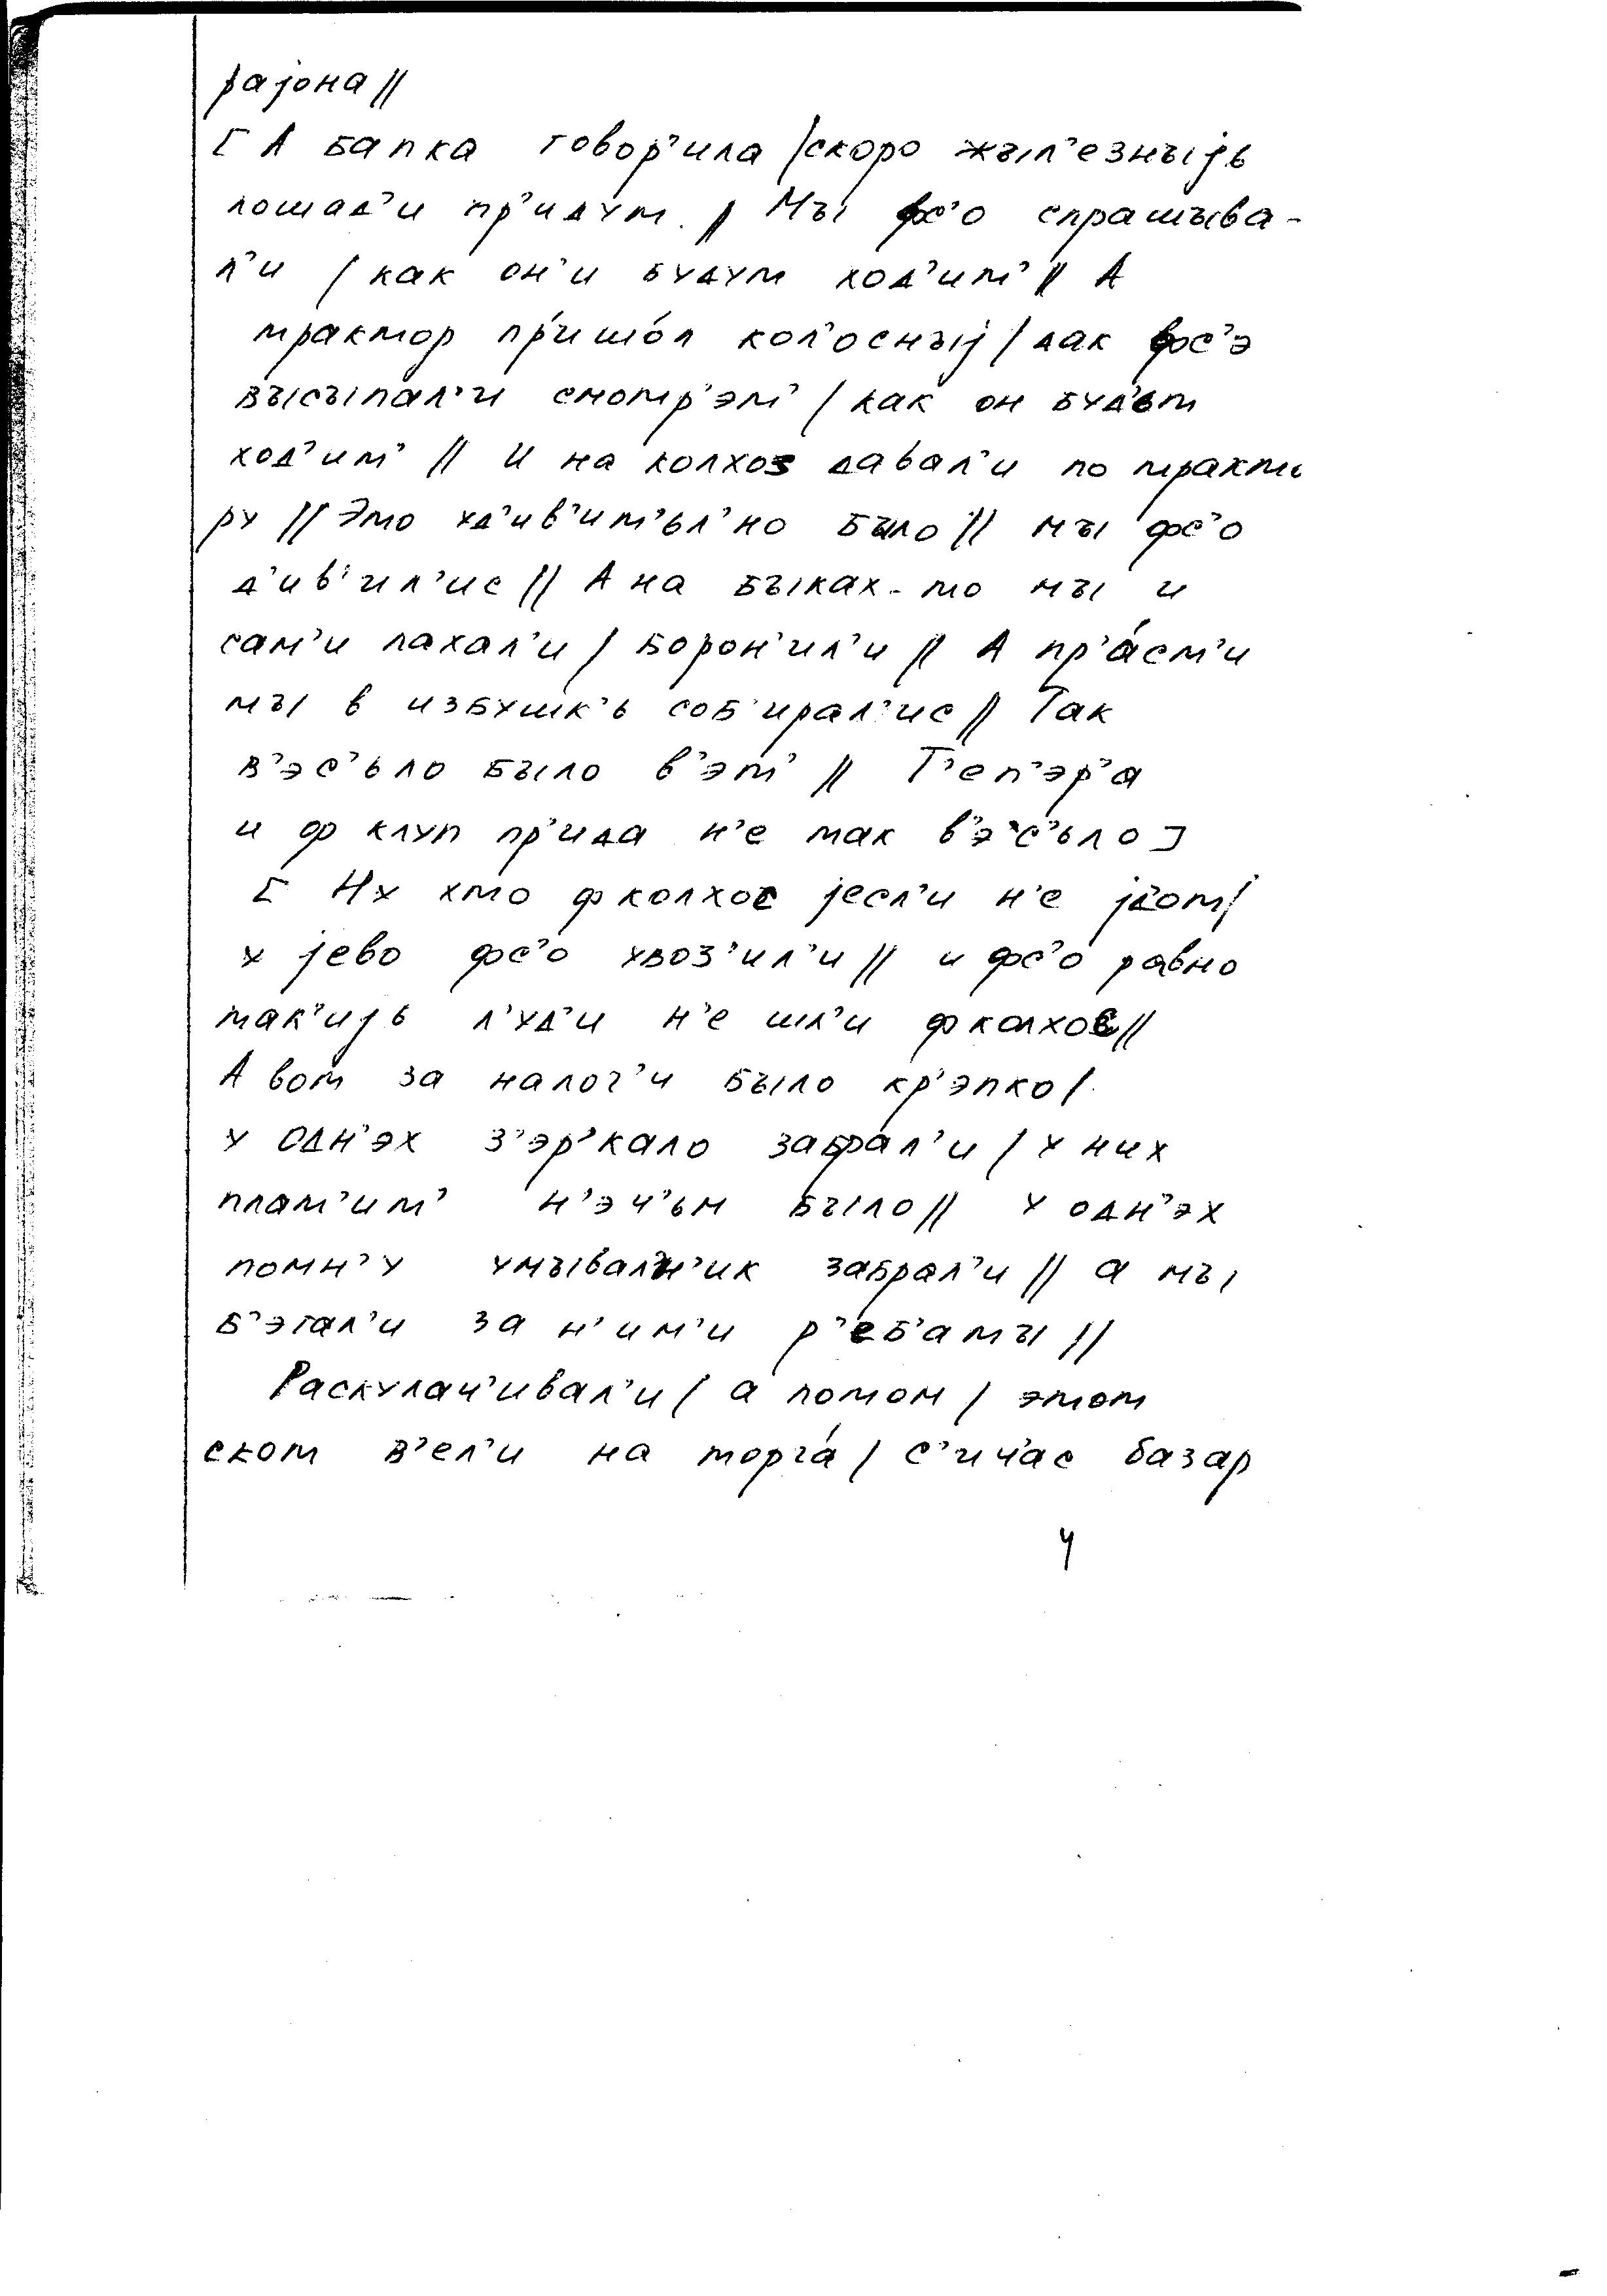 рajона //
[ А бапка говор’ила / скоро жыл’езныjь
лошад’и пр’идут. // Мы фс’о спрашыва-
л’и / как он’и будут ход’ит’ // А
трактор пр’ишо́л кол’осныj / дак фс’э
высыпал’и смотр’эт’ / как он буд’ьт
ход’ит’ // И на колхоз давал’и по тракто
ру // Это уд’ив’ит’ьл’но было // мы фс’о
д’ив’ил’ис // А на быках-то мы и
сам’и пахал’и / борон’ил’и // А пр’а́ст’и
мы в избушк’ь соб’ирал’ис // Так
в’эс’ьло было в’эт’ // Т’еп’эр’а
и ф клуп пр’ида н’е так в’э’с’ьло ]
[ Ну хто ф колхос jесл’и н’е jд’от /
у jево фс’о увоз’ил’и // и фс’о равно
так’иjь л’уд’и н’е шл’и ф колхос //
А вот за налог’и было кр’эпко /
у одн’эх з’эр’кало забрал’и / у них
плат’ит’ н’эч’ьм было // у одн’эх
помн’у умывал’н’ик забрал’и // а мы
б’эгал’и за н’им’и р’еб’аты //
Раскулач’ивал’и / а потом / этот
скот в’ел’и на торга́ / с’ич’ас базар
4